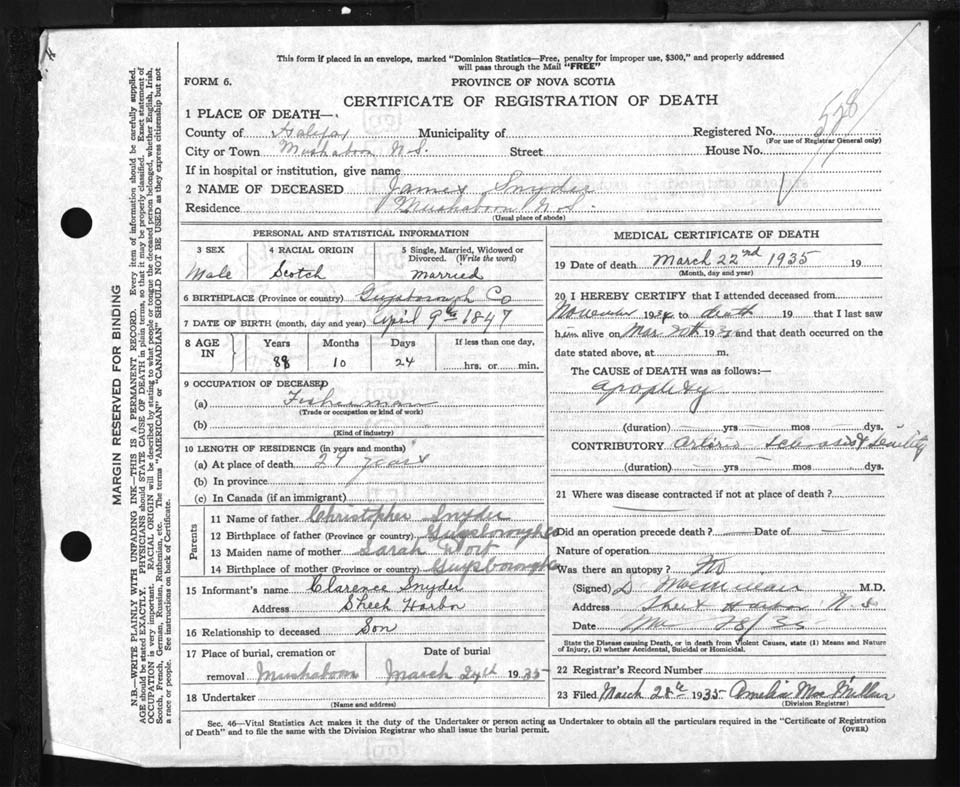 This form if placed in an envelope, marked "Dominion Statistics—Free, penalty for improper use, $300," and properly addressed
will pass through the Mail "FREE"
FORM 6.
PROVINCE OF NOVA SCOTIA
CERTIFICATE OF REGISTRATION OF DEATH
528
1 PLACE OF DEATH—
County of Halifax Municipality of Registered No.
(For use of Registrar General only)
City or Town Mushaboom N.S. Street House No.
If in hospital or institution, give name
2 NAME OF DECEASED James Snyder
Residence Mushaboom N.S.
(Usual place of abode)
PERSONAL AND STATISTICAL INFORMATION
3 SEX 4 RACIAL ORIGIN 5 Single, Married, Widowed or
Divorced. (Write the word)
Male Scotch Married
6 BIRTHPLACE (Province or country) Guysborough Co
7 DATE OF BIRTH (month, day and year) April 9th 1847
8 AGE IN Years Months Days If less than one day,
88 10 24 hrs. or min.
9 OCCUPATION OF DECEASED
(a) Fisherman
(Trade or occupation or kind of work)
(b)
(Kind of industry)
10 LENGTH OF RESIDENCE (in years and months)
(a) At place of death years
(b) In province
(c) In Canada (if an immigrant)
Parents
11 Name of father Christopher Snyder
12 Birthplace of father (Province or country) Guysborough Co
13 Maiden name of mother Sarah
14 Birthplace of mother (Province or country) Guysborough Co
15 Informant's name Clarence Snyder
Address Sheet Harbor
16 Relationship to deceased Son
17 Place of burial, cremation or Date of burial
removal Mushaboom March 24th 1935
18 Undertaker
(Name and address)
MEDICAL CERTIFICATE OF DEATH
19 Date of death March 22nd 1935 19
(Month, day and year)
20 I HEREBY CERTIFY that I attended deceased from
November 1934 to death 19 that I last saw
him alive on Mar 20th 19 and that death occurred on the
date stated above, at m.
The CAUSE OF DEATH was as follows:—
Apoplexy
(duration) yrs mos dys.
CONTRIBUTORY Arterio Sclerosis & Senility
(duration) yrs mos dys.
21 Where was disease contracted if not at place of death?
Did an operation precede death? Date of
Nature of operation
Was there an autopsy? No
(Signed) D McMillan M.D.
Address Sheet Harbor N.S
Date 28/35
State the Disease causing Death, or in death from Violent Causes, state (1) Means and Nature
of Injury, (2) whether Accidental, Suicidal or Homicidal.
22 Registrar's Record Number
23 Filed March 28th 1935 Amelia MacMillan
(Division Registrar)
Sec. 46—Vital Statistics Act makes it the duty of the Undertaker or person acting as Undertaker to obtain all the particulars required in the "Certificate of Registration
of Death" and to file the same with the Division Registrar who shall issue the burial permit.
(OVER)
MARGIN RESERVED FOR BINDING
N.B.—WRITE PLAINLY WITH UNFADING INK—THIS IS A PERMANENT RECORD. Every item of information should be carefully supplied.
AGE should be stated EXACTLY. PHYSICIANS should STATE CAUSE OF DEATH in plain terms, so that it may be properly classified. Exact statement of
OCCUPATION is very important. RACIAL ORIGIN will be described by stating to what people or tongue the deceased person belonged, whether English, Irish,
Scotch, French, German, Russian, Ruthenian, etc. The terms "AMERICAN" or "CANADIAN" SHOULD NOT BE USED as they express citizenship but not
a race or people. See instructions on back of Certificate.